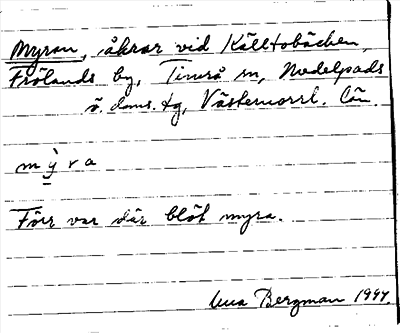 Myran, åkrar vid Källtobäcken,
Frölands by, Timrå sn, Medelpads
ö. doms. tg, Västernorrl. län.
m ỳ r a
Förr var där blöt myra.
Bergman 1947.